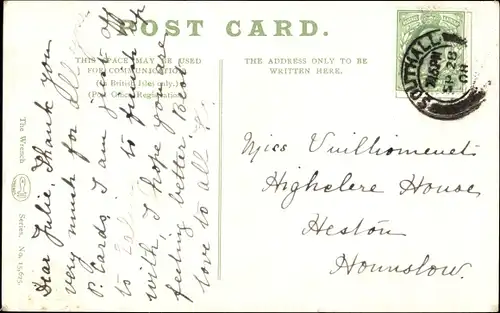 POST CARD.
THIS SPACE MAY BE USED
FOR COMMUNICATION
(In British Isles only.)
(Post Office Regulation)
THE ADDRESS ONLY TO BE
WRITTEN HERE.
SOUTHALL
Dear Julie, Thank you
very much for
P. Cards. I am just off
to to finish up
with, I hope you are
feeling better. Best
love to all
Miss Vuilliomenet
Highclere House
Heston
Hounslow.
The Wrench Series, No. 15,675